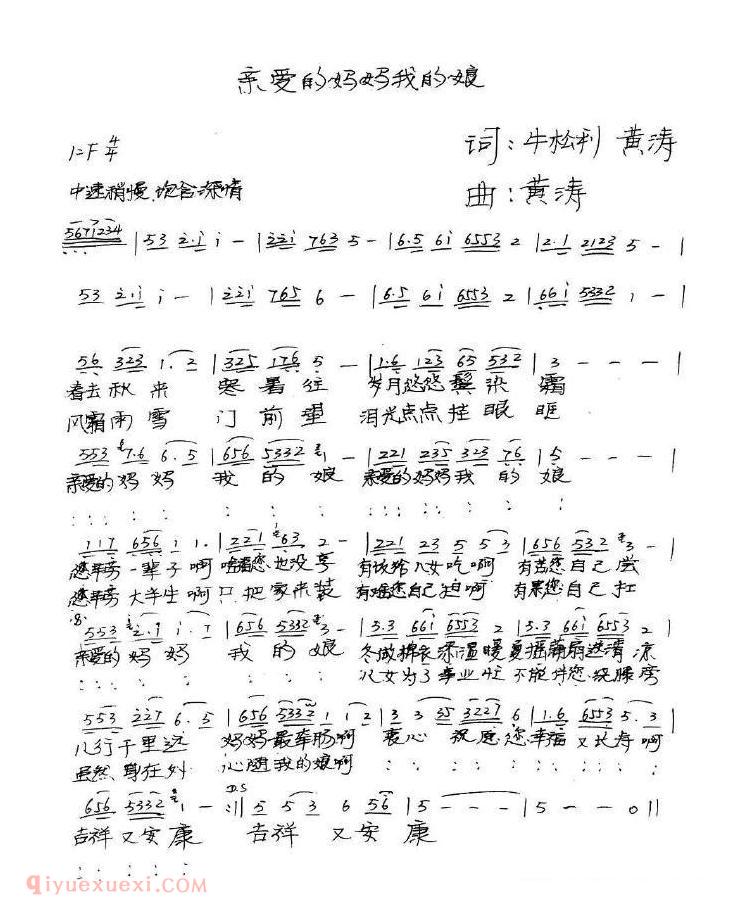 亲爱的妈妈我的娘
1=F 4/4
词:牛松利 黄涛
中速稍慢 饱含深情
曲:黄涛
5671234 | 53 2·1 1 - | 221 763 5 - | 6·5 61 6553 2 | 2·1 2123 5 - |
53 2·1 1 - | 221 765 6 - | 6·5 61 6553 2 | 661 5332 1 - |
56 323 1·2 | 325 176 5 - | 1·6 123 65 532 | 3 - - - |
春去秋来 寒暑往 岁月悠悠鬓染霜
风霜雨雪 门前望 泪光点点挂眼眶
553 7·6 6·5 | 656 5332 1 - | 221 235 323 76 | 5 - - - |
亲爱的妈妈 我的娘 亲爱的妈妈我的娘
117 656 1 1· | 221 63 2 - | 221 23 5 5 3 | 656 532 3 - |
您辛劳一辈子啊 啥福您也没享 有饭给儿女吃啊 有苦您自己尝
您辛劳大半生啊 只把家来装 有啥您自己扛
553 2·1 1·7 | 656 5332 3 - | 5·3 661 6553 2 | 5·3 661 6553 2 |
亲爱的妈妈 我的娘 冬做棉衣添温暖 夏摇蒲扇送清凉
儿女为了事业忙 不能伴您绕膝旁
553 227 6·5 | 656 5332 1 1 2 | 3 3 35 3227 6 | 1·6 6553 5·3 |
儿行千里远 妈妈最牵肠啊 衷心祝愿您幸福又长寿啊
虽然身在外 心随我的娘啊
656 5332 1 - :|| 5 5 3 6 56 | 5 - - - | 5 - - 0 ||
D.S
吉祥又安康 吉祥又安康
qiyuexuexi.com